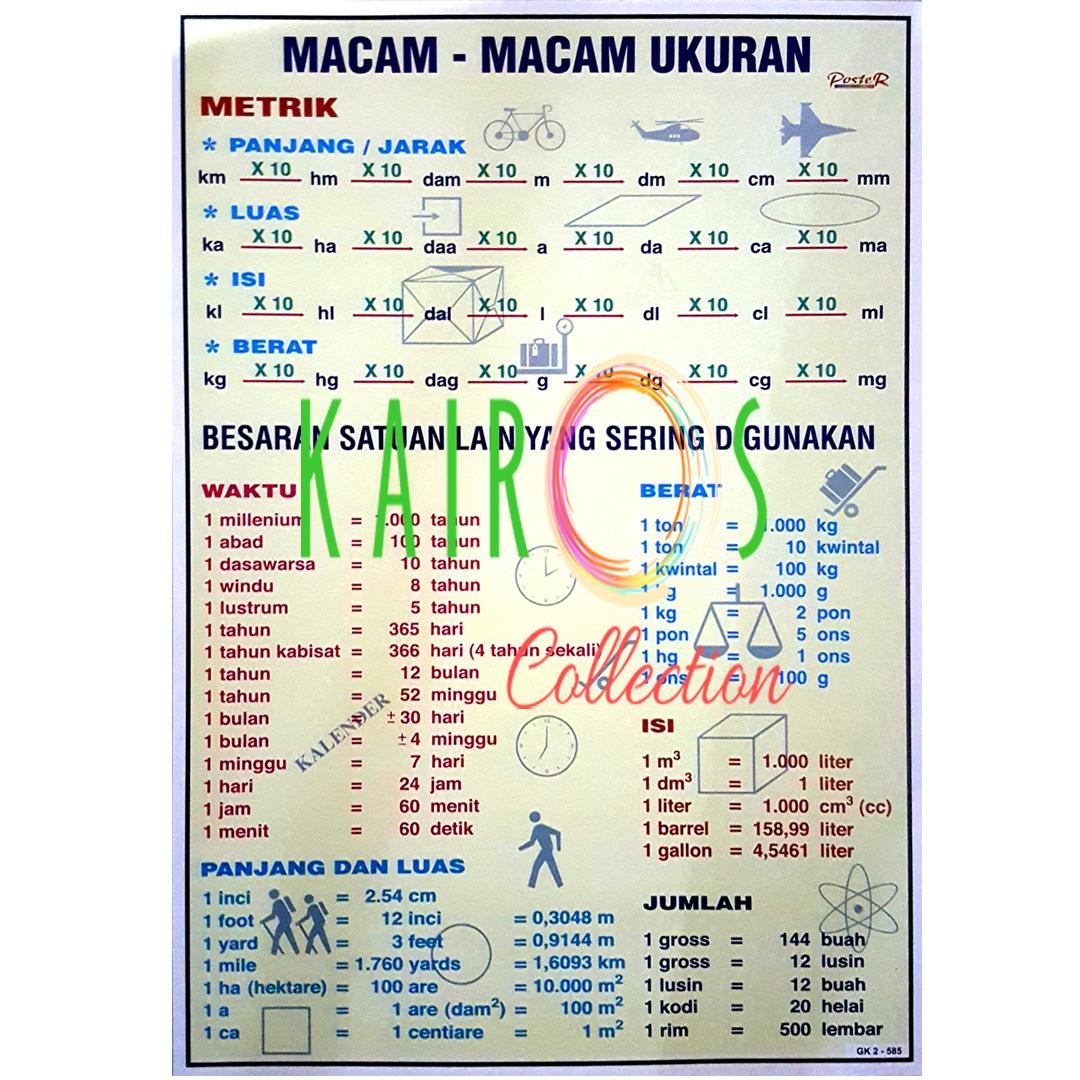 MACAM - MACAM UKURAN
PosteR
METRIK
* PANJANG / JARAK
km X 10 hm X 10 dam X 10 m X 10 dm X 10 cm X 10 mm
* LUAS
ka X 10 ha X 10 daa X 10 a X 10 da X 10 ca X 10 ma
* ISI
kl X 10 hl X 10 dal X 10 l X 10 dl X 10 cl X 10 ml
* BERAT
kg X 10 hg X 10 dag X 10 g X 10 dg X 10 cg X 10 mg
KAIROS
Collection
BESARAN SATUAN LAIN YANG SERING DIGUNAKAN
WAKTU
1 millenium = 1.000 tahun
1 abad = 100 tahun
1 dasawarsa = 10 tahun
1 windu = 8 tahun
1 lustrum = 5 tahun
1 tahun = 365 hari
1 tahun kabisat = 366 hari (4 tahun sekali)
1 tahun = 12 bulan
1 tahun = 52 minggu
1 bulan = ±30 hari
1 bulan = ±4 minggu
1 minggu = 7 hari
1 hari = 24 jam
1 jam = 60 menit
1 menit = 60 detik
KALENDER
PANJANG DAN LUAS
1 inci = 2.54 cm
1 foot = 12 inci = 0,3048 m
1 yard = 3 feet = 0,9144 m
1 mile = 1.760 yards = 1,6093 km
1 ha (hektare) = 100 are = 10.000 m²
1 a = 1 are (dam²) = 100 m²
1 ca = 1 centiare = 1 m²
BERAT
1 ton = 1.000 kg
1 ton = 10 kwintal
1 kwintal = 100 kg
1 kg = 1.000 g
1 kg = 2 pon
1 pon = 5 ons
1 hg = 1 ons
1 ons = 100 g
ISI
1 m³ = 1.000 liter
1 dm³ = 1 liter
1 liter = 1.000 cm³ (cc)
1 barrel = 158,99 liter
1 gallon = 4,5461 liter
JUMLAH
1 gross = 144 buah
1 gross = 12 lusin
1 lusin = 12 buah
1 kodi = 20 helai
1 rim = 500 lembar
GK 2 - 585